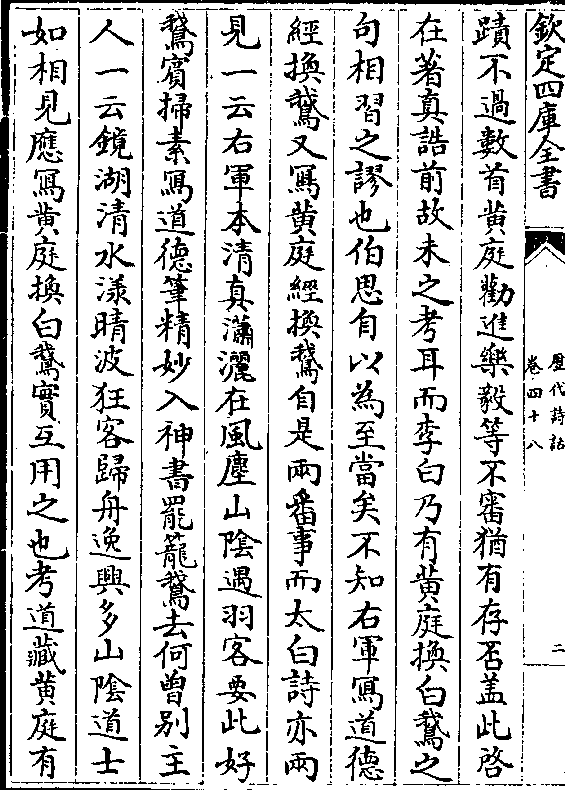 欽定四庫全書
歴代詩話
卷四十八
二
蹟不過數首黄庭勸進樂毅等不審猶有存否盖此啓
在著真誥前故未之考耳而李白乃有黄庭換白鵞之
句相習之謬也伯思自以為至當矣不知右軍寫道德
經換鵞又寫黄庭經換鵞自是兩番事而太白詩亦兩
見一云右軍本清真瀟灑在風塵山陰遇羽客要此好
鵞賓掃素寫道德筆精妙入神書罷籠鵞去何曽别主
人一云鏡湖清水漾晴波狂客歸舟逸興多山陰道士
如相見應寫黄庭換白鵞實互用之也考道藏黄庭有